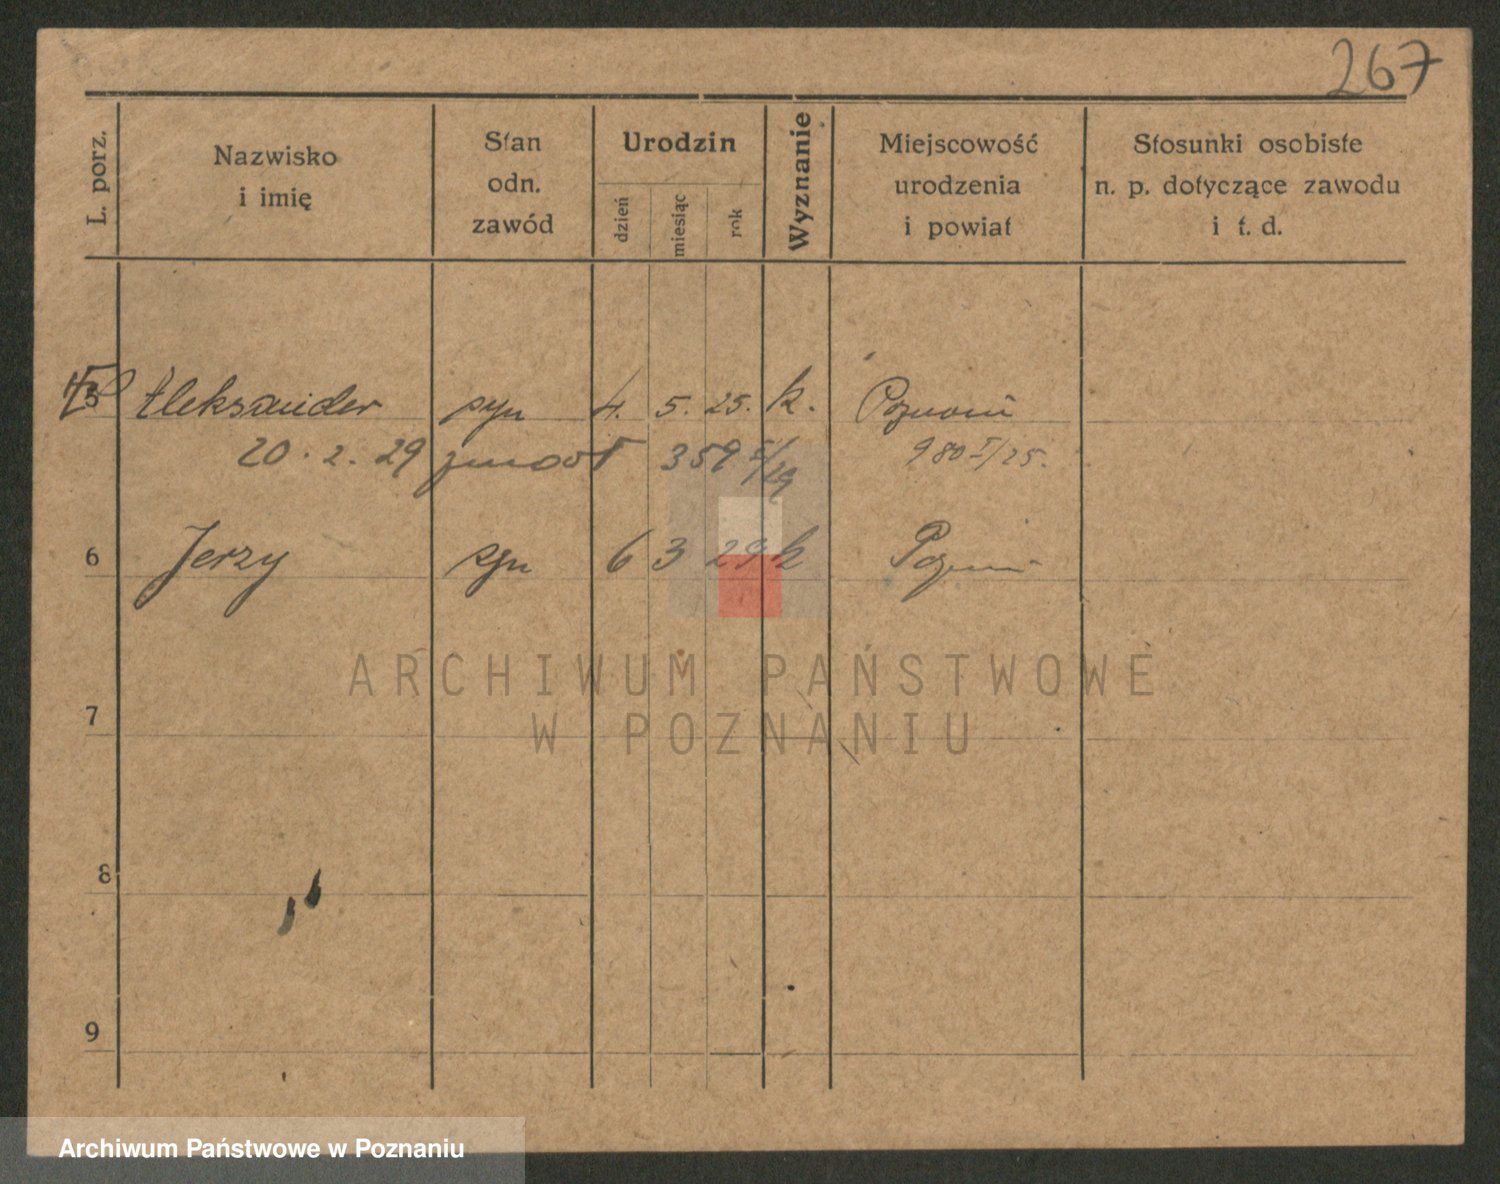 267
L. porz.
Nazwisko
i imię
Stan
odn.
zawód
Urodzin
dzień
miesiąc
rok
Wyznanie
Miejscowość
urodzenia
i powiat
Stosunki osobiste
n. p. dotyczące zawodu
i t. d.
5 Aleksander syn 4. 5. 25. k. Poznań
20.2.29 359 I/29 980 I/25.
6 Jerzy syn 6 3 29 k Poznań
ARCHIWUM PAŃSTWOWE
W POZNANIU
7
8
9
Archiwum Państwowe w Poznaniu